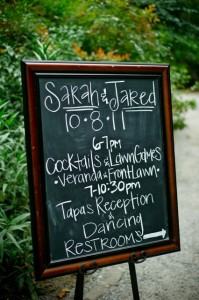 Sarah & Jared
10·8·11
6-7pm
Cocktails & Lawn Games
·Veranda & Front Lawn·
7-10:30pm
Tapas Reception
&
Dancing
RESTROOMS